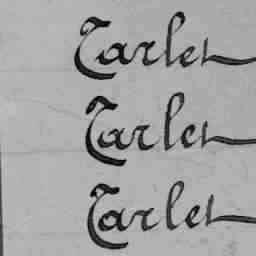 Tarlet
Tarlet
Tarlet